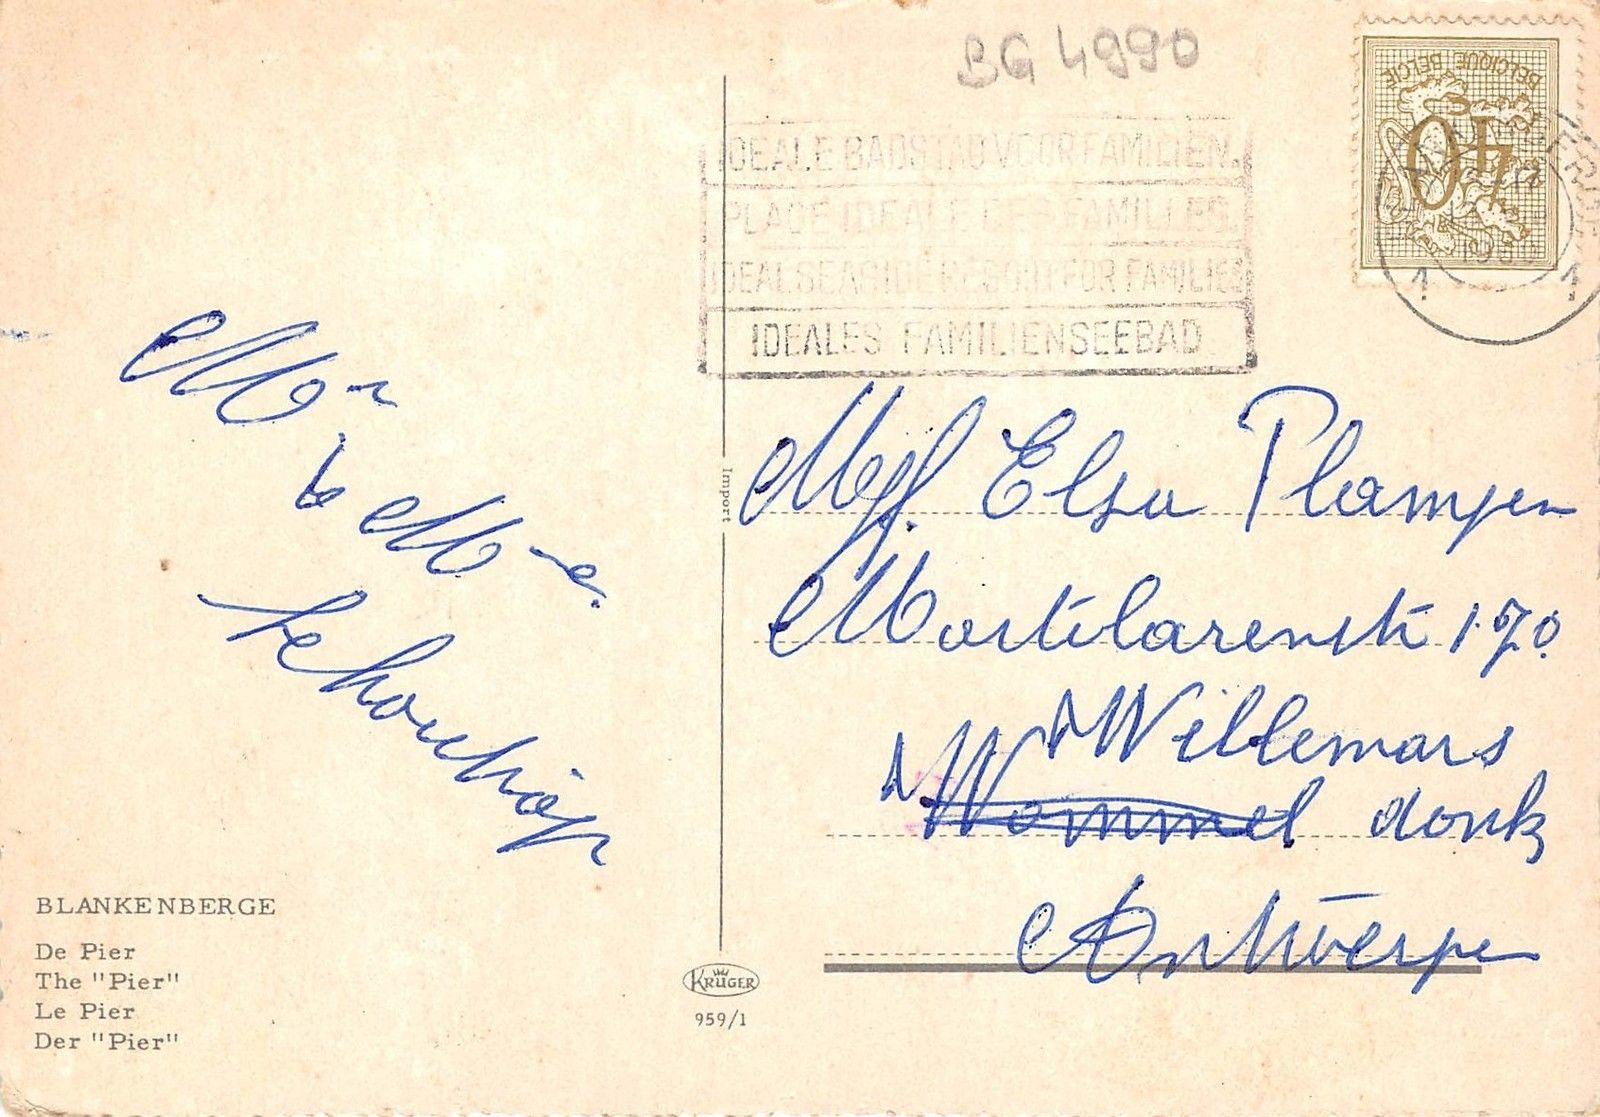 BG 4990
BELGIQUE BELGIË
40
IDEALE BADSTAD VOOR FAMILIEN.
PLAGE IDEALE DES FAMILLES.
IDEAL SEASIDE RESORT FOR FAMILIES
IDEALES FAMILIENSEEBAD
1 1
Mr
& Me
Import
Mej. Elsa Plampen
170.
Willemars
Wommel donk
Antwerpen
BLANKENBERGE
De Pier
The "Pier"
Le Pier
Der "Pier"
KRÜGER
959/1